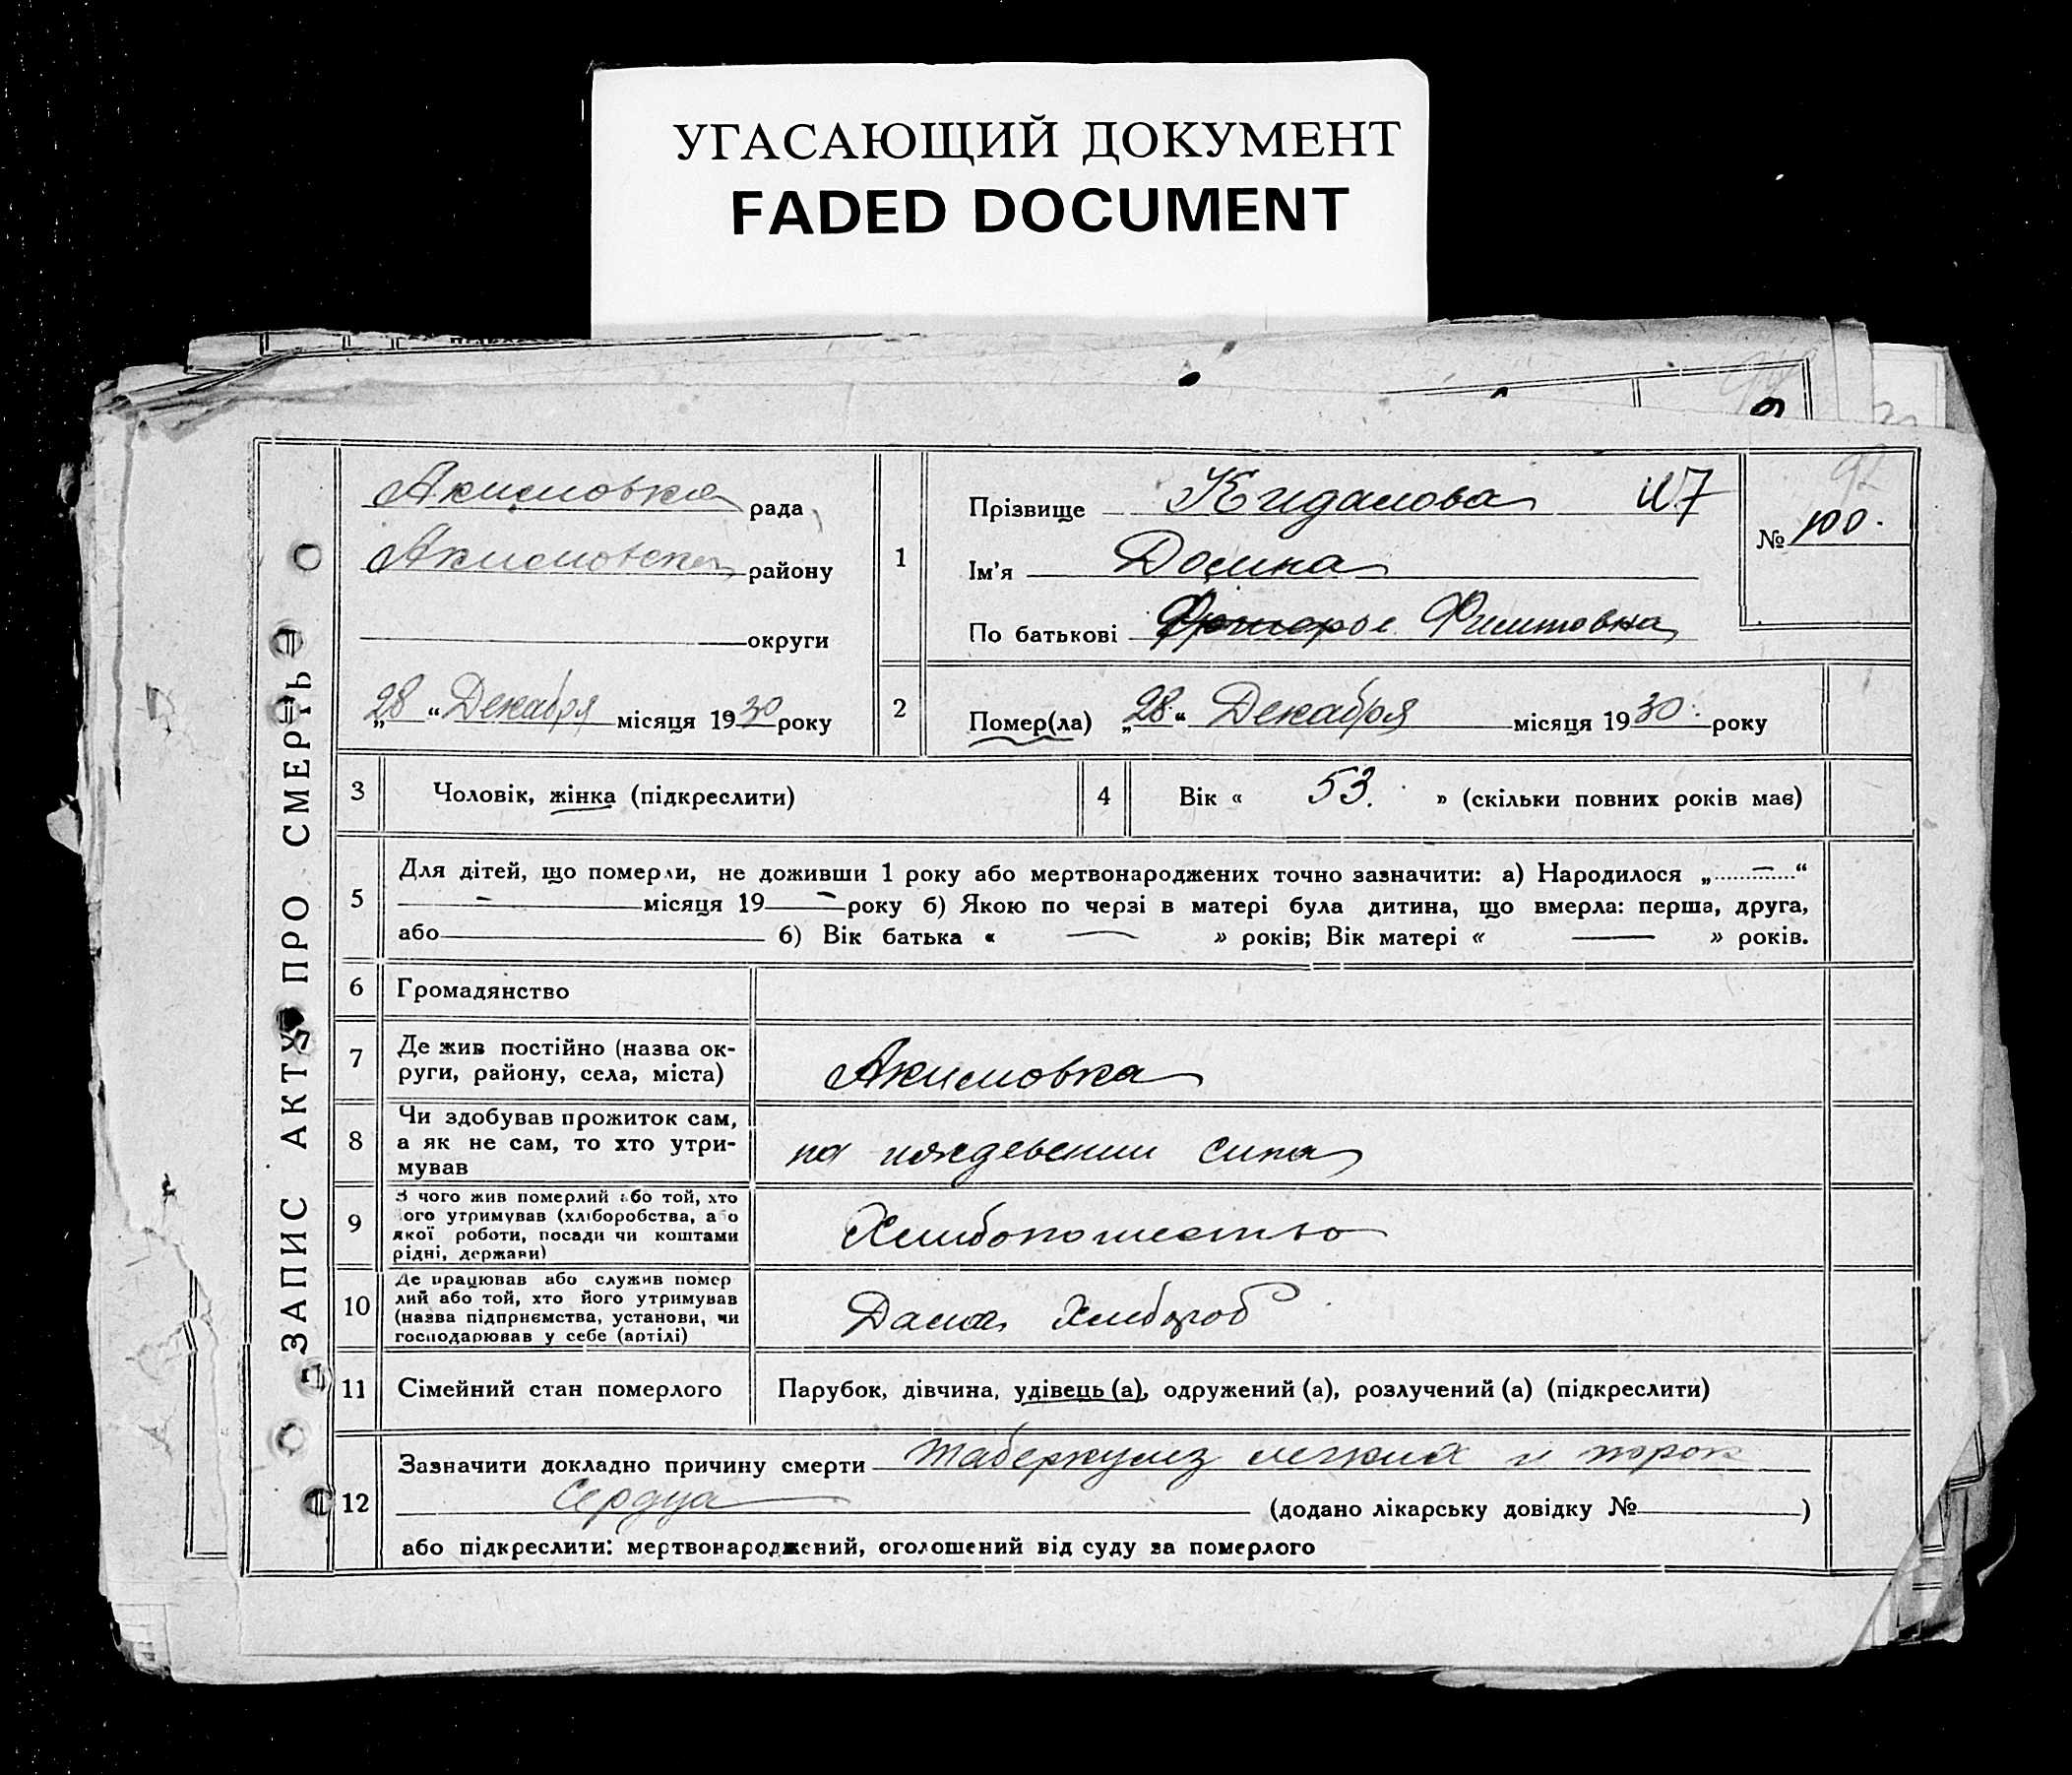 УГАСАЮЩИЙ ДОКУМЕНТ
FADED DOCUMENT
ЗАПИС АКТУ ПРО СМЕРТЬ
Акимовка рада
району
округи
„28“ Декабря місяця 1930 року
1
Прізвище Кидалова
Ім'я Домна
По батькові Филитовна
№ 100.
92
2
Помер(ла) „28“ Декабря місяця 1930 року
3
Чоловік, жінка (підкреслити)
4
Вік « 53. » (скільки повних років має)
5
Для дітей, що померли, не доживши 1 року або мертвонароджених точно зазначити: а) Народилося „ — “
— місяця 19 — року б) Якою по черзі в матері була дитина, що вмерла: перша, друга,
або б) Вік батька « — » років; Вік матері « — » років.
6
Громадянство
7
Де жив постійно (назва ок-
руги, району, села, міста)
Акимовка
8
Чи здобував прожиток сам,
а як не сам, то хто утри-
мував
на иждевении сина
9
З чого жив померлий або той, хто
його утримував (хліборобства, або
якої роботи, посади чи коштами
рідні, держави)
10
Де працював або служив помер
лий або той, хто його утримував
(назва підприємства, установи, чи
господарював у себе (артілі)
Дама Хлибороб
11
Сімейний стан померлого
Парубок, дівчина, удівець (а), одружений (а), розлучений (а) (підкреслити)
12
Зазначити докладно причину смерти таберкулиз легких и порок
Сердца (додано лікарську довідку № )
або підкреслити: мертвонароджений, оголошений від суду за померлого